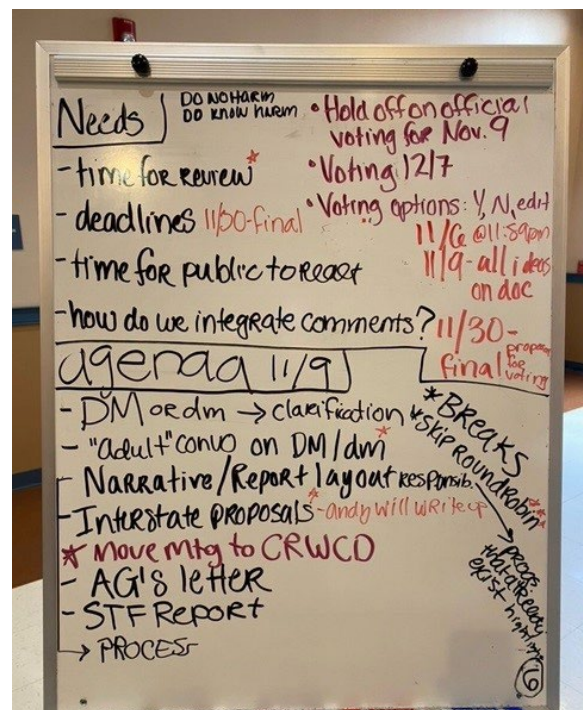 Needs
DO NO HARM
DO KNOW HARM
- time for review*
- deadlines 11/30-final
- time for public to react
- how do we integrate comments?
• Hold off on official
voting for Nov. 9
• Voting 12/7
• Voting options: Y, N, edit
11/6 @11:59pm
11/9-all ideas
on doc
11/30-
proposal
for
voting
final
agenda 11/9
- DM or dm → clarification
- "adult" convo on DM/dm*
- Narrative/Report layout responsib.
- Interstate PROPOSALS*-andy will write up
* Move Mtg to CRWCD
- AG's letter
- STF REPORT
→ PROCESS
* BREAKS
* SKIP ROUND ROBIN
progs
that already
exist
6